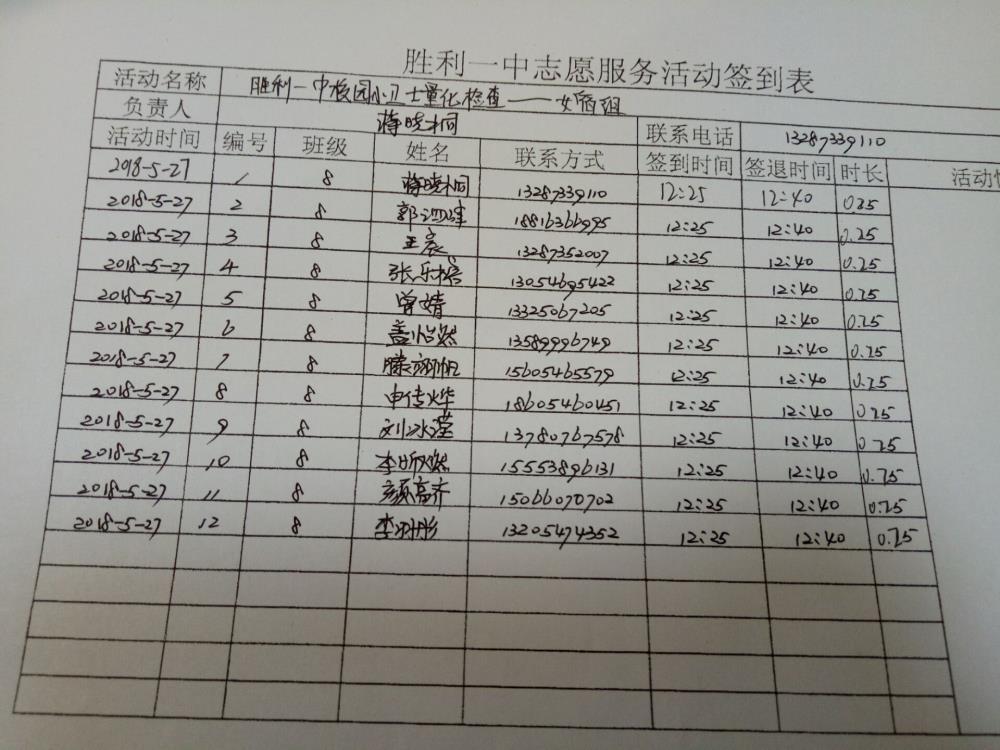 胜利一中志愿服务活动签到表
活动名称 胜利一中校园小卫士量化检查——女宿组
负责人 蒋晓桐 联系电话 13287339110
活动时间 编号 班级 姓名 联系方式 签到时间 签退时间 时长 活动情
2018-5-27 1 8 蒋晓桐 13287339110 12:25 12:40 0.25
2018-5-27 2 8 郭泗峰 18816366995 12:25 12:40 0.25
2018-5-27 3 8 王宸 13287352007 12:25 12:40 0.25
2018-5-27 4 8 张乐榕 13054695422 12:25 12:40 0.25
2018-5-27 5 8 曾婧 13325067205 12:25 12:40 0.25
2018-5-27 6 8 盖怡然 13589996749 12:25 12:40 0.25
2018-5-27 7 8 滕翊帆 15605465579 12:25 12:40 0.25
2018-5-27 8 8 申传烨 18605460451 12:25 12:40 0.25
2018-5-27 9 8 刘冰滢 13780767578 12:25 12:40 0.25
2018-5-27 10 8 李昕燃 15553896131 12:25 12:40 0.25
2018-5-27 11 8 颜高齐 15066070702 12:25 12:40 0.25
2018-5-27 12 8 李羽彤 13205474352 12:25 12:40 0.25